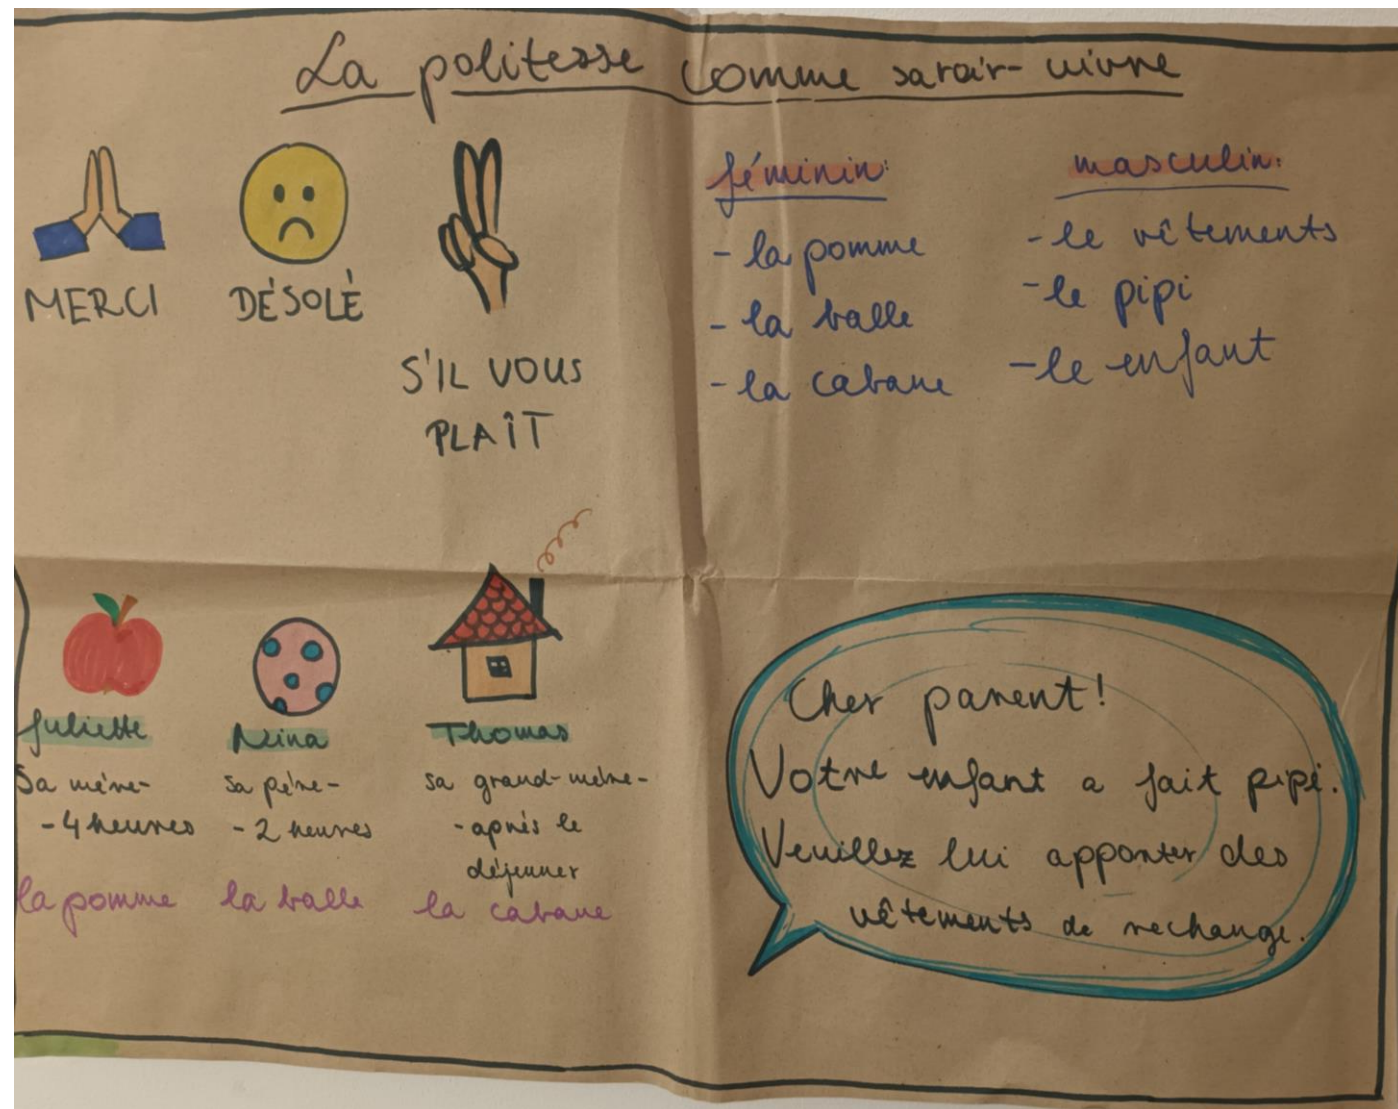 La politesse comme savoir-vivre
MERCI
DÉSOLÉ
S'IL VOUS
PLAÎT
féminin:
- la pomme
- la balle
- la cabane
masculin:
- le vêtements
- le pipi
- le enfant
Juliette
Sa mère-
- 4 heures
la pomme
Nina
sa père-
- 2 heures
la balle
Thomas
sa grand-mère-
- après le
déjeuner
la cabane
Cher parent!
Votre enfant a fait pipi.
Veuillez lui apporter des
vêtements de rechange.